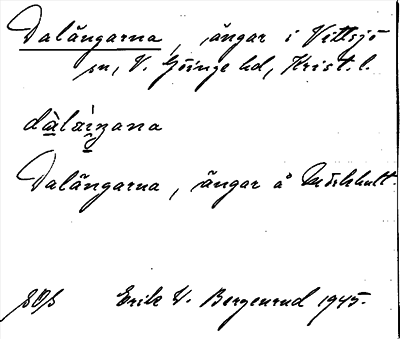 Dalängarna, ängar i Vittsjö
sn, V. Göinge hd, Krist. l.
Dalängarna, ängar å Mörkhult.
Erik W. Bergenrud 1945.